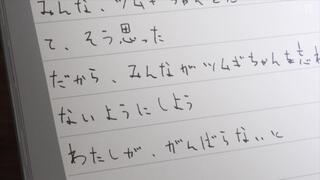 みんな、ツムギちゃんの
て、そう思った
だから、みんながツムギちゃんを忘れ
ないようにしよう
わたしが、がんばらないと